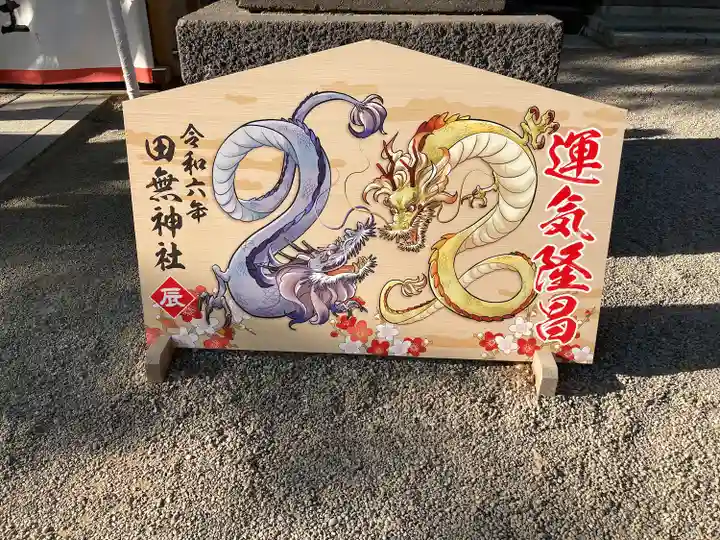 運気隆昌
令和六年
田無神社
辰